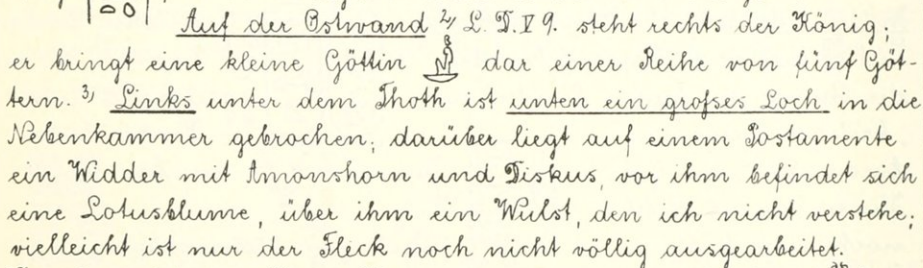 Auf der Ostwand ²⁾ L. D. V 9. steht rechts der König;
er bringt eine kleine Göttin dar einer Reihe von fünf Göt-
tern. ³⁾ Links unter dem Thoth ist unten ein großes Loch in die
Nebenkammer gebrochen; darüber liegt auf einem Postamente
ein Widder mit Amonshorn und Diskus, vor ihm befindet sich
eine Lotusblume, über ihm ein Wulst, den ich nicht verstehe;
vielleicht ist nur der Fleck noch nicht völlig ausgearbeitet.